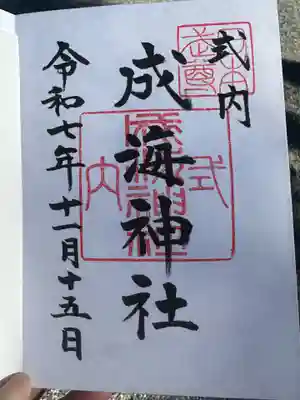 式内
成海神社
令和七年十一月十五日
式内
成海神社